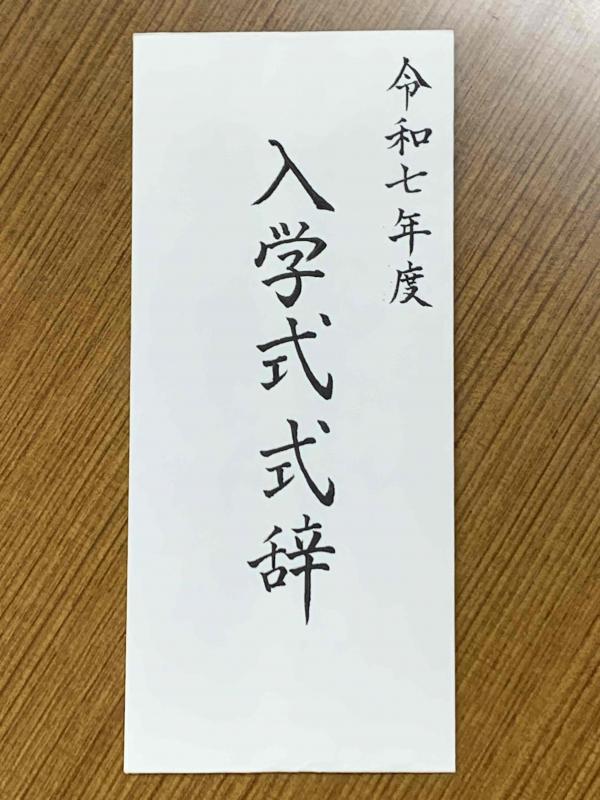 令和七年度
入学式式辞